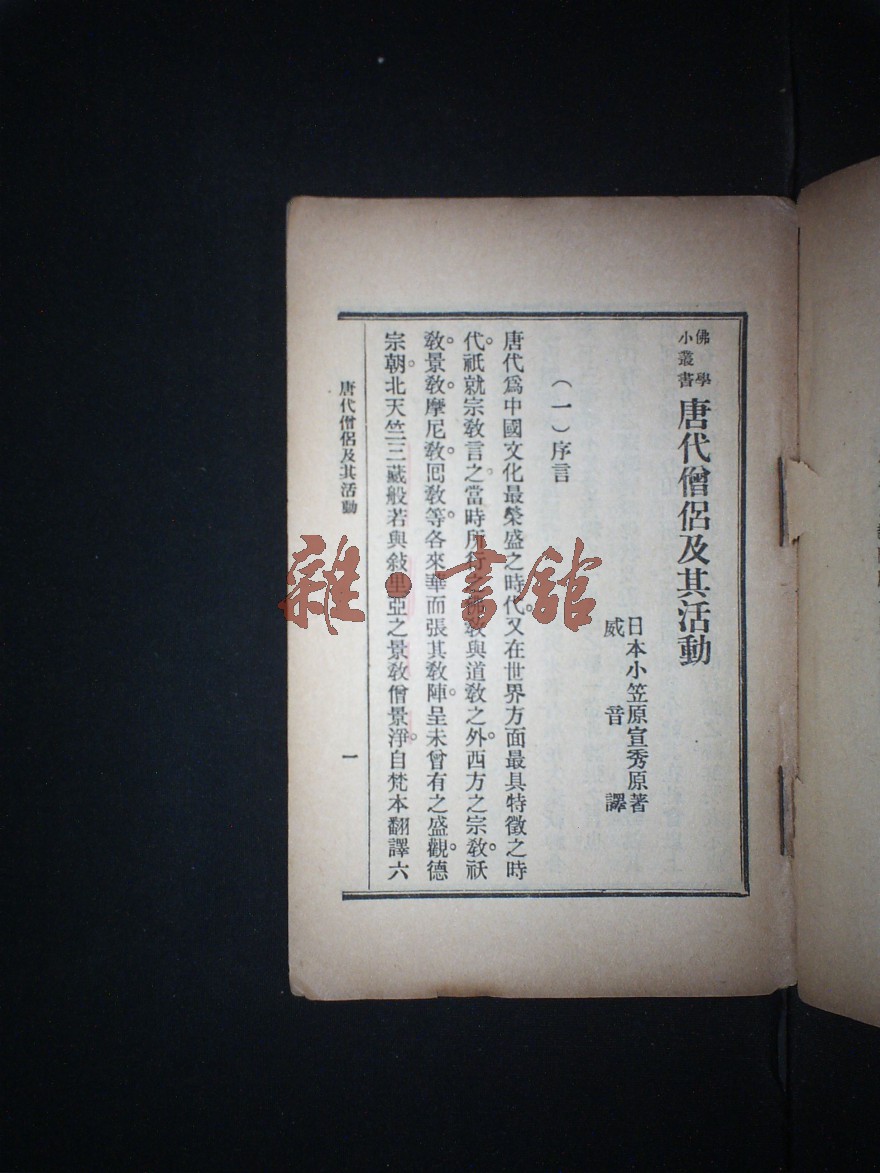 佛學
小叢書
唐代僧侶及其活動
日本小笠原宣秀原著
威音譯
（一）序言
唐代爲中國文化最榮盛之時代。又在世界方面最具特徵之時
代。祇就宗敎言之。當時所行之佛敎與道敎之外。西方之宗敎。祆
敎。景敎。摩尼敎。囘敎等。各來華而張其敎陣。呈未曾有之盛觀。德
宗朝。北天竺三藏般若與敍里亞之景敎僧景淨。自梵本翻譯六
唐代僧侶及其活動
一
雜·書館